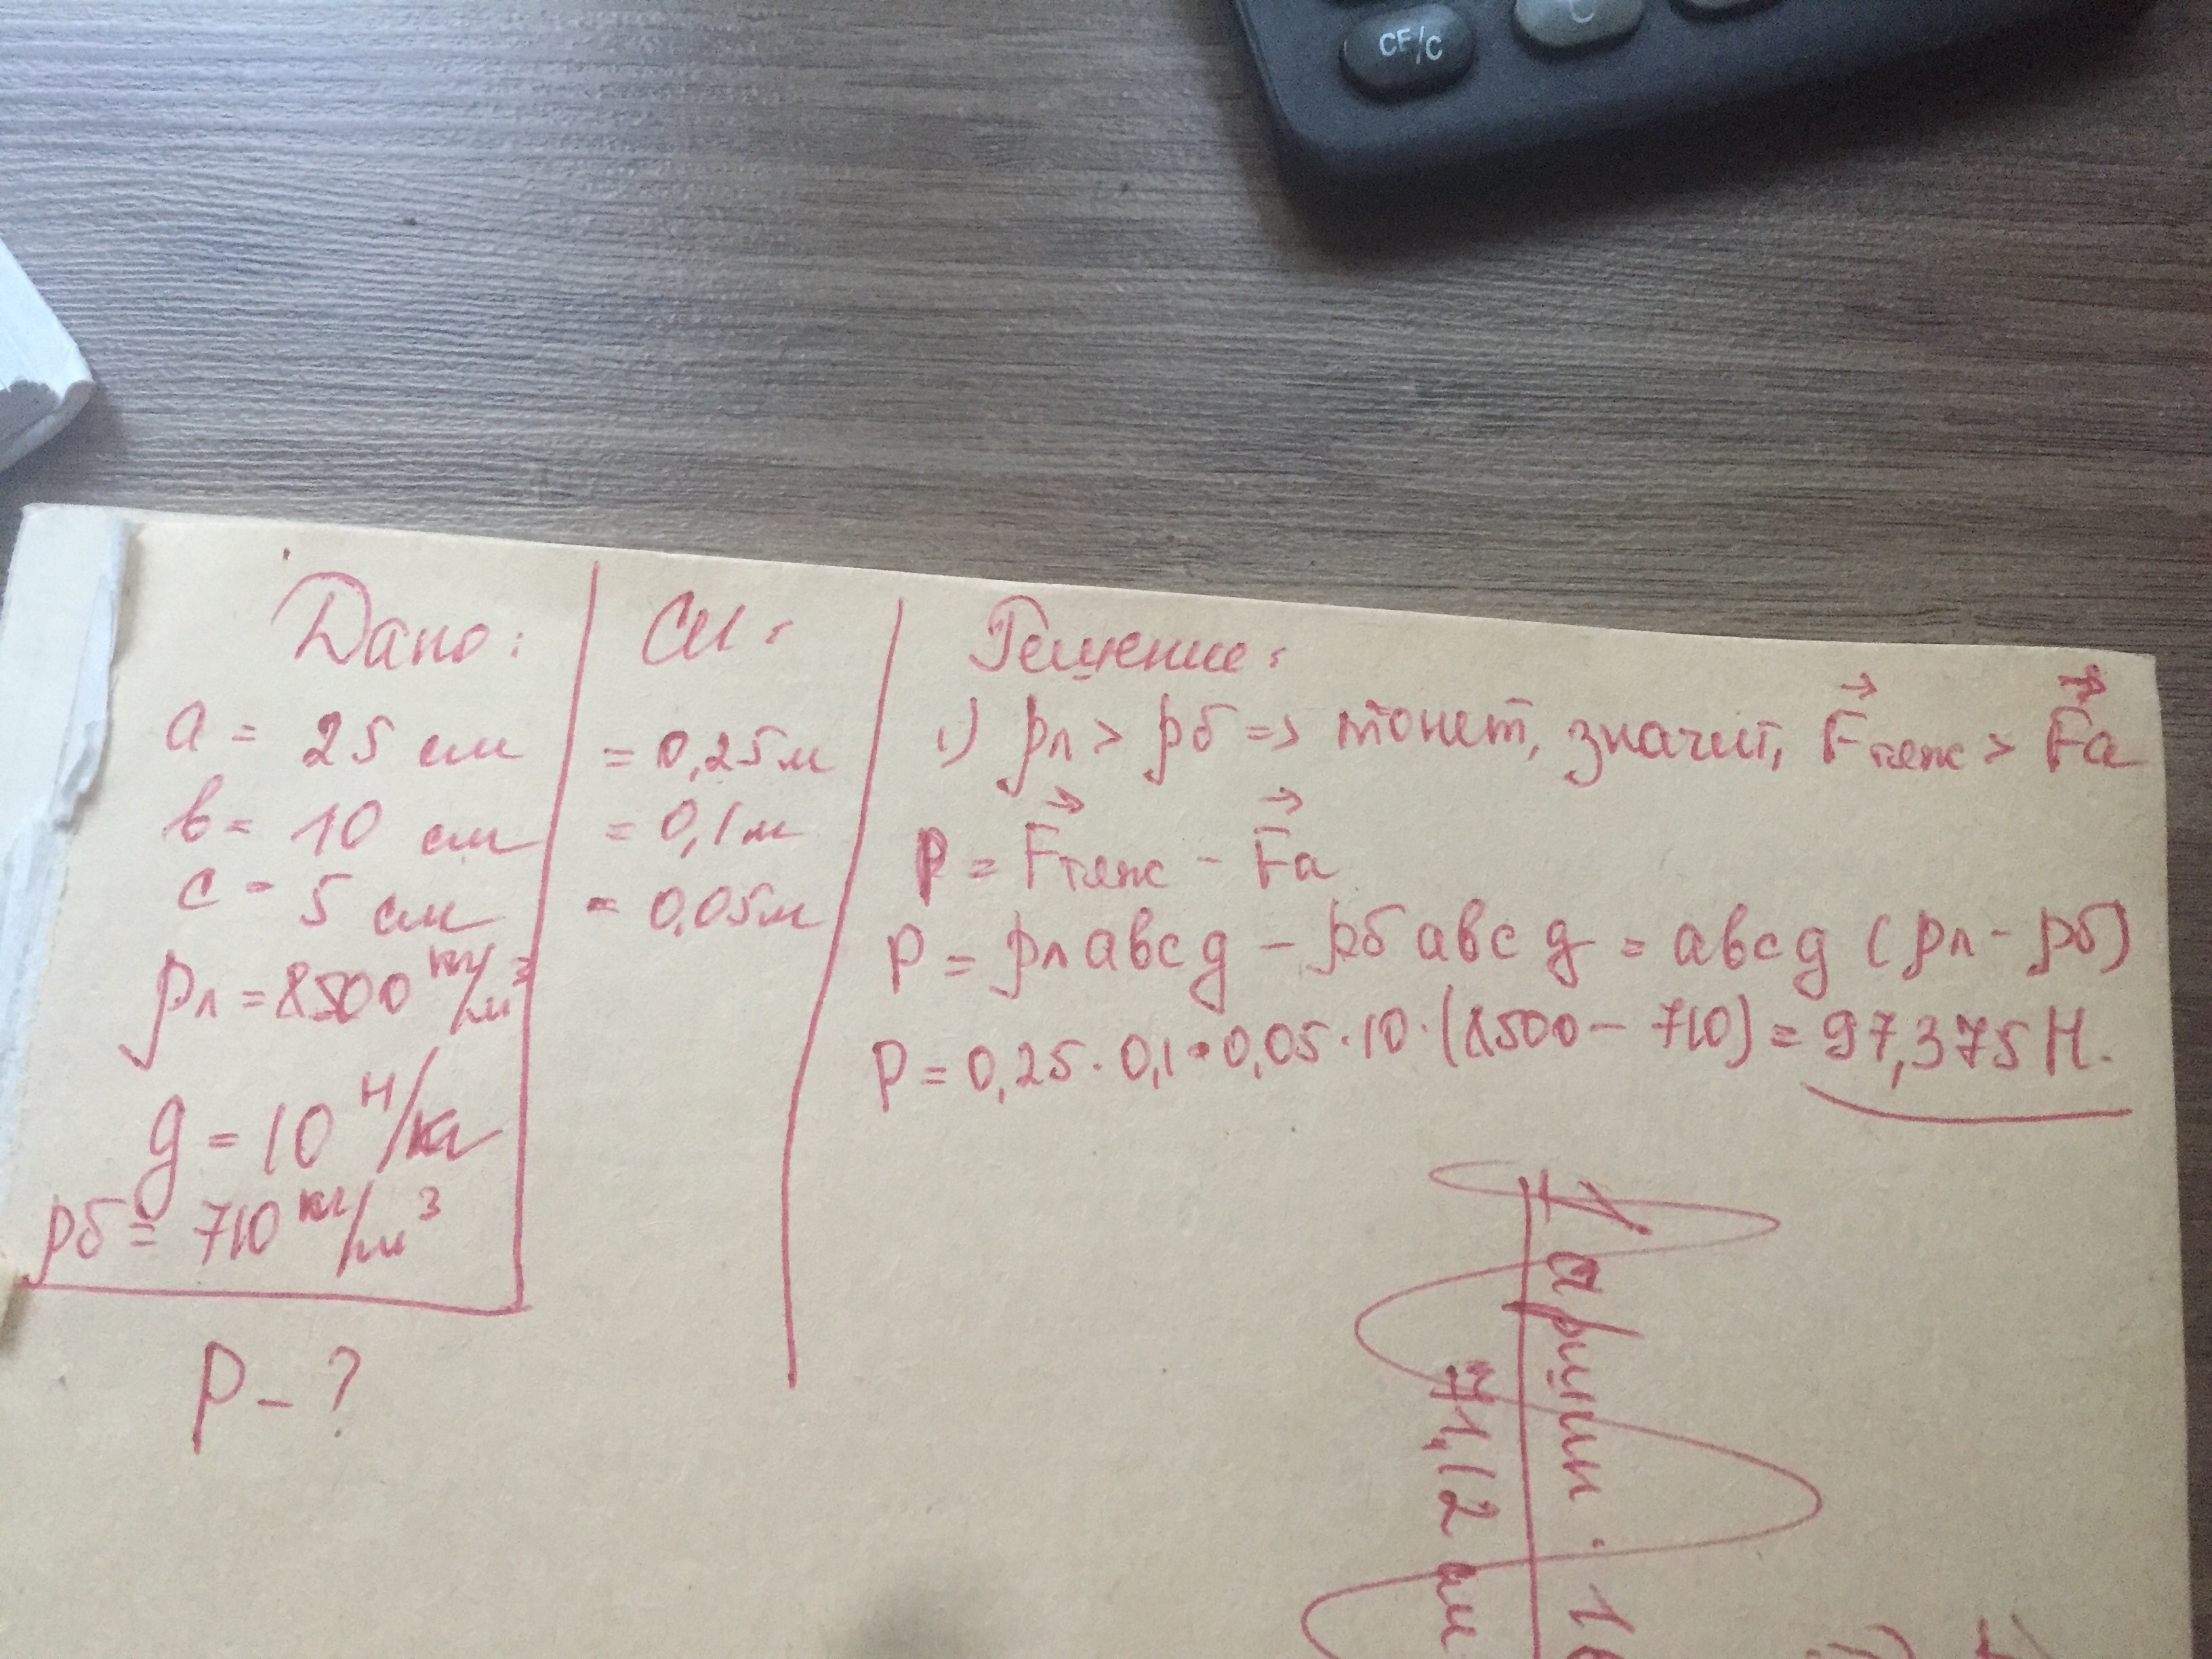 CE/C
C
Дано:
a = 25 см
b = 10 см
c = 5 см
ρл = 8500 кг/м³
g = 10 Н/кг
ρб = 710 кг/м³
P - ?
СИ:
= 0,25м
= 0,1м
= 0,05м
Решение:
1) ρл > ρб => тонет, значит, Fтяж > Fа
P = Fтяж - Fа
P = ρл abc g - ρб abc g = abc g (ρл - ρб)
P = 0,25 · 0,1 · 0,05 · 10 · (8500 - 710) = 97,375 Н.
1 аршин
71,12 см